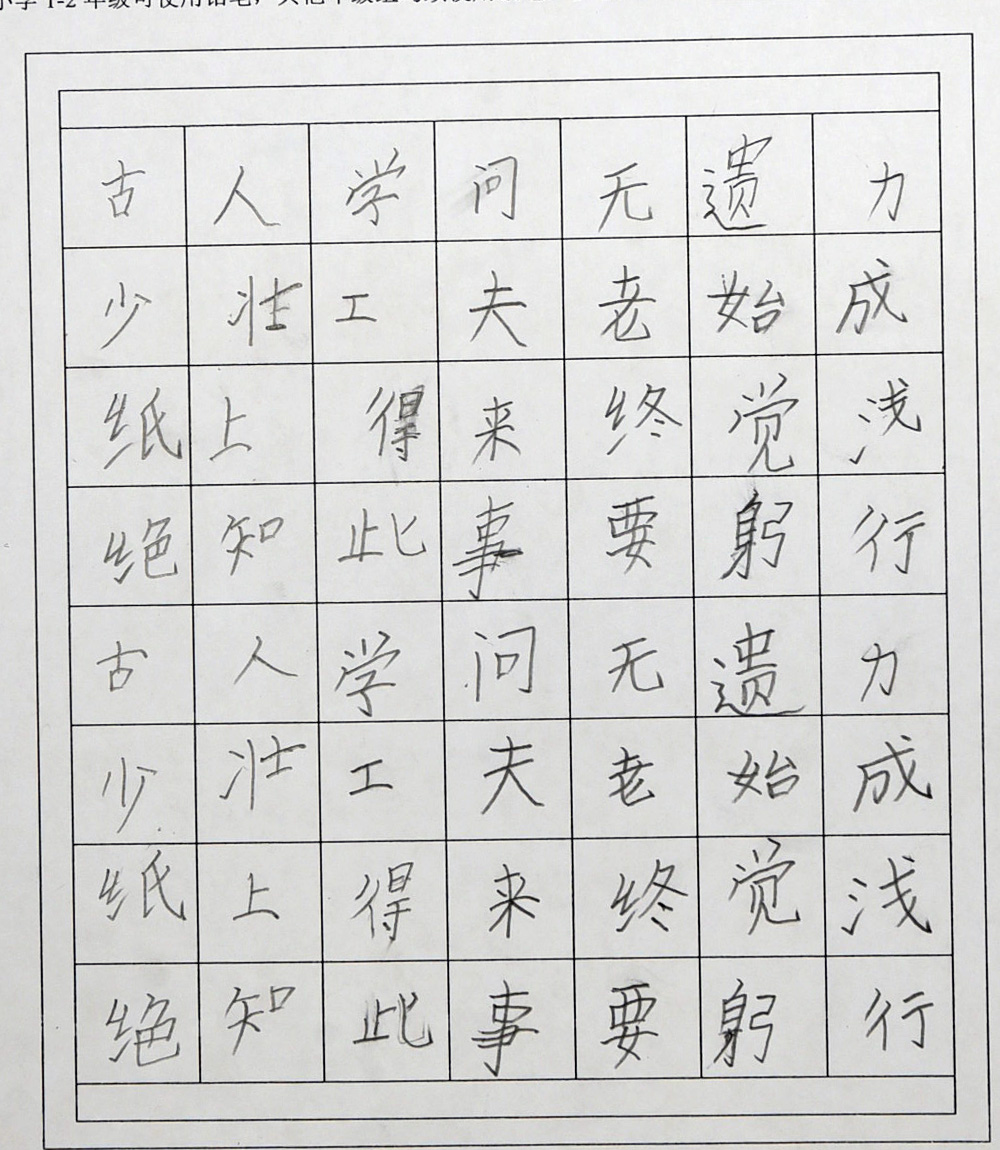 小学1-2年级可使用铅笔，其他年级
古人学问无遗力
少壮工夫老始成
纸上得来终觉浅
绝知此事要躬行
古人学问无遗力
少壮工夫老始成
纸上得来终觉浅
绝知此事要躬行